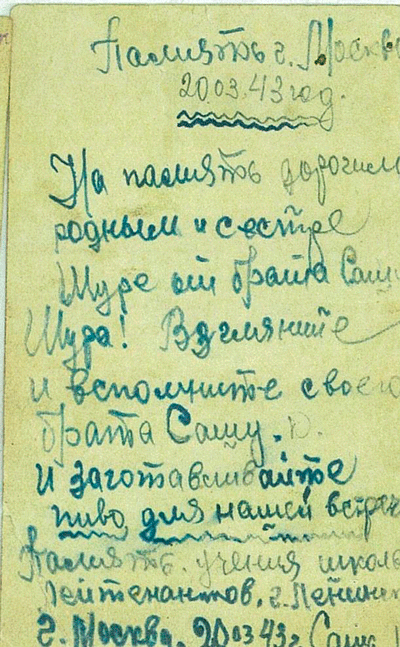 Память г. Москва
20.03.43 год.
На память дорогим
родным и сестре
Шуре от брата Саши
Шура! Взгляните
и вспомните своего
брата Сашу.
и заготавливайте
пиво для нашей встречи
Память. учения школы
Лейтенантов. г. Ленинск
г. Москва. 20 03 43 г Саша